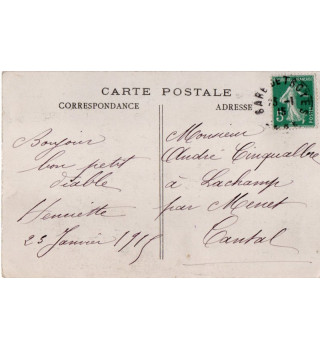 CARTE POSTALE
CORRESPONDANCE
ADRESSE
Bonjour
bon petit
diable
Henriette
23 Janvier 1915
Monsieur
André Cinqualbre
à Lachamp
par Menet
Cantal
GARE
5